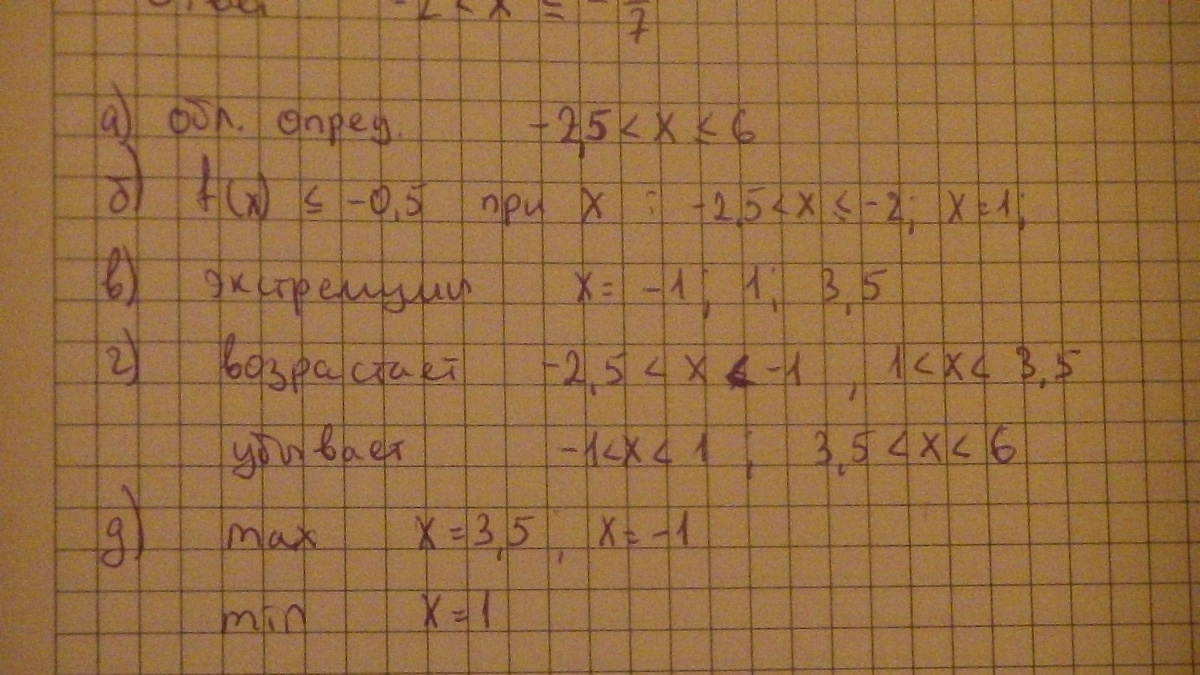 -2 < x ≤ - /7
а) обл. опред. -2,5 < x < 6
б) f(x) ≤ -0,5 при x : -2,5 < x ≤ -2; x = 1;
в) экстремумы x = -1; 1; 3,5
г) возрастает -2,5 < x < -1 , 1 < x < 3,5
убывает -1 < x < 1 ; 3,5 < x < 6
д) max x = 3,5 ; x = -1
min x = 1